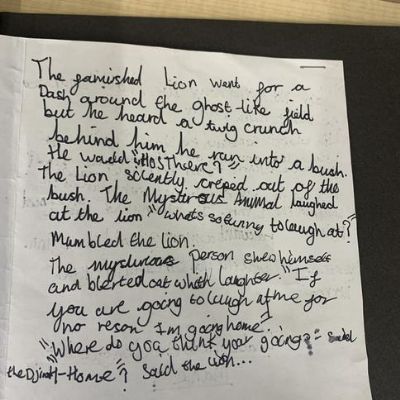 The famished Lion went for a
Dash around the ghost-like field
but he heard a twig crunch
behind him he ran into a bush.
He "HOSThere?"
The Lion scently creped out of the
bush. The Mysterous Animal laughed
at the lion "whats so funny to laugh at?"
Mumbled the lion.
The mysterious person shew himself
and blerted out whith laughter "If
you are going to laugh at me for
no reson I'm going home".
"Where do you think your going?"
the Djinn "-Home"? Said the lion...